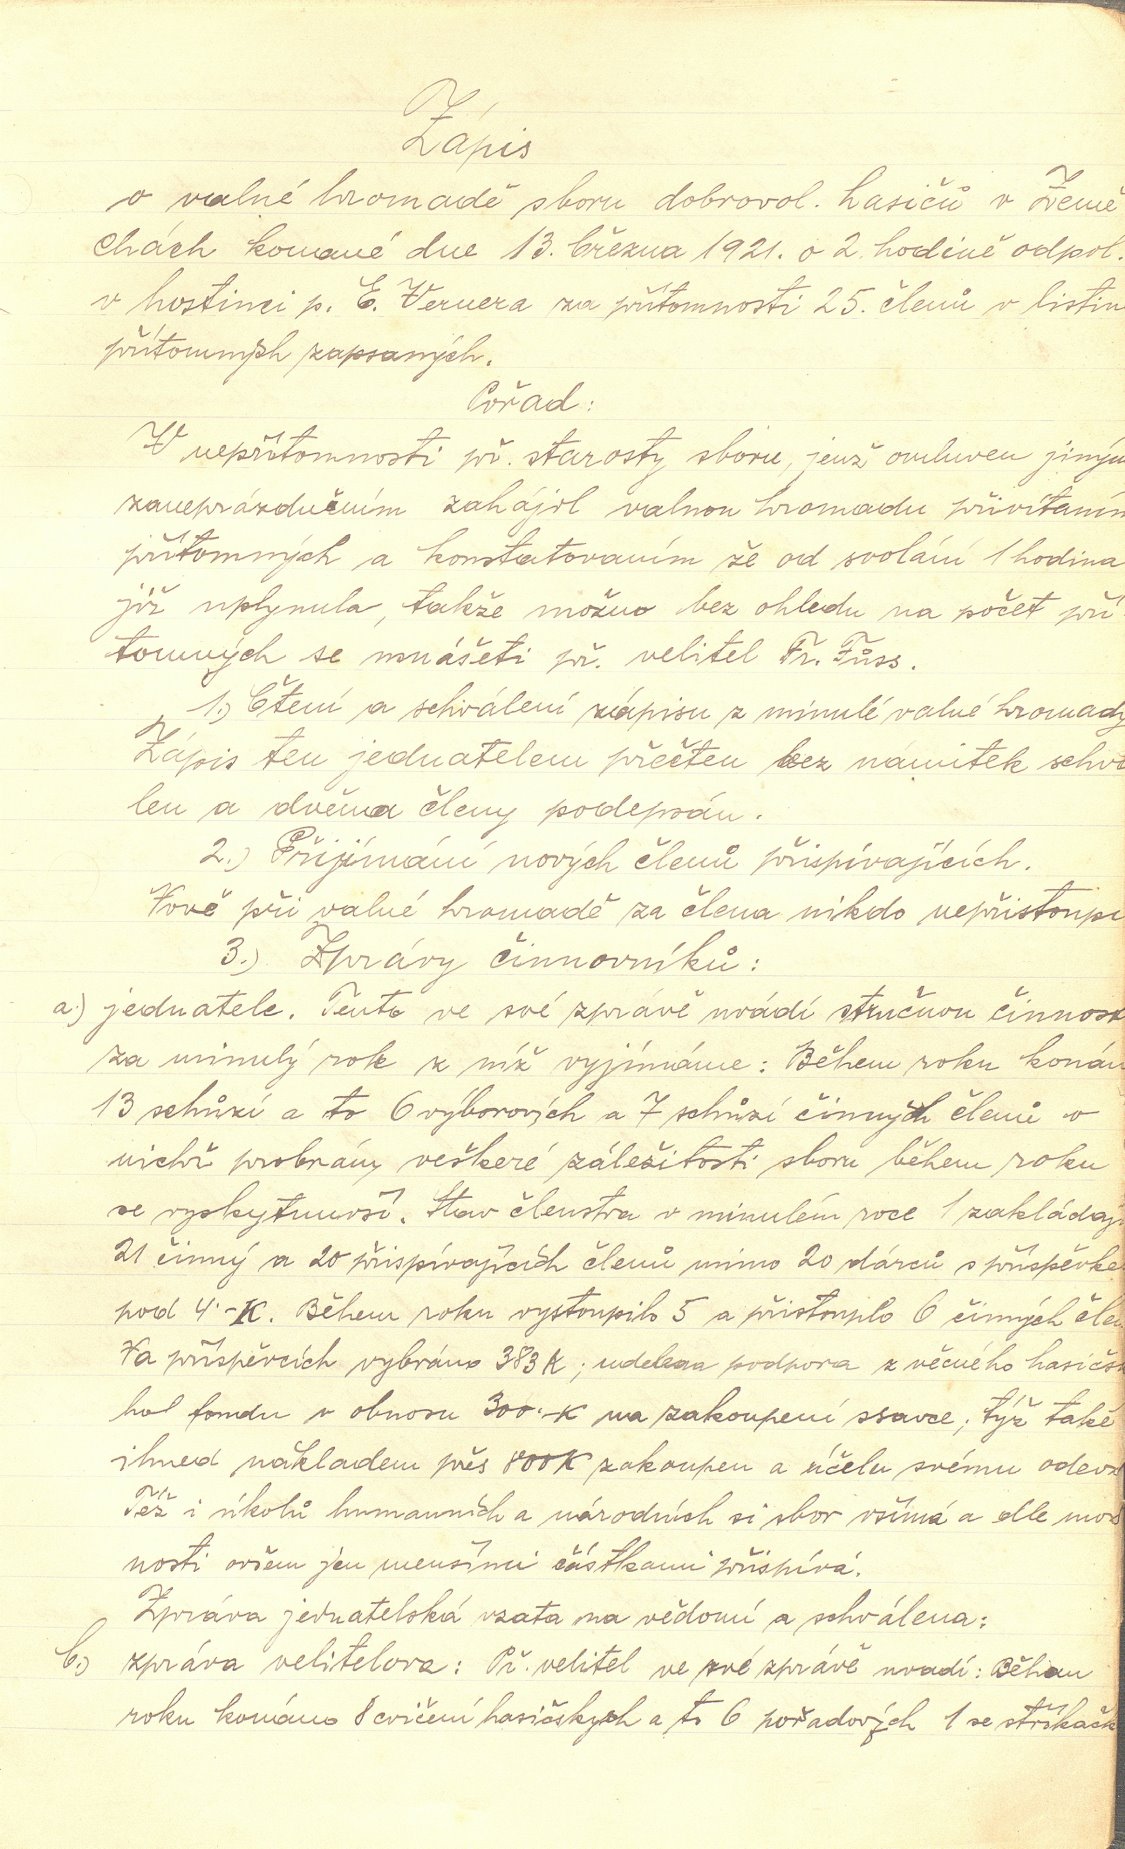 Zápis
o valné hromadě sboru dobrovol. hasičů v Země
chách konané dne 13. března 1921. o 2. hodině odpol.
v hostinci p. E. Vernera za přítomnosti 25. členů v listin
přítomných zapsaných.
Pořad:
V nepřítomnosti př. starosty sboru, jenž omluven jiným
zaneprázdněním zahájil valnou hromadu přivítáním
přítomných a konstatováním že od svolání 1 hodina
již uplynula, takže možno bez ohledu na počet pří
tomných se usnášeti př. velitel Fr. Füss.
1.) Čtení a schválení zápisu z minulé valné hromady
Zápis ten jednatelem přečten bez námitek schvá
len a dvěma členy podepsán.
2.) Přijímání nových členů přispívajících.
Nově při valné hromadě za člena nikdo nepřistoupi
3.) Zprávy činovníků:
a) jednatele. Tento ve své zprávě uvádí stručnou činnost
za minulý rok z níž vyjímáme: Během roku konán
13 schůzí a to 6 výborových a 7 schůzí činných členů v
nichž probrány veškeré záležitosti sboru během roku
se vyskytnuvší. Stav členstva v minulém roce 1 zakládají
21 činný a 20 přispívajících členů mimo 20 dárců s příspěvke
pod 4·-K. Během roku vystoupilo 5 a přistouplo 6 činných člen
Na příspěvcích vybráno 383 K; udelena podpora z věcného hasičsk
hol fondu v obnosu 300·-K na zakoupení ssavce; týž také
ihned nákladem přes 800K zakoupen a účelu svému odevz
Též i úkolů humanních a národních si sbor všímá a dle mož
nosti ovšem jen menšími částkami přispívá.
Zpráva jednatelská vzata na vědomí a schválena:
b.) zpráva velitelova: Př. velitel ve své zprávě uvadí: Během
roku konáno 8 cvičení hasičských a to 6 pořadových 1 se stříkačk